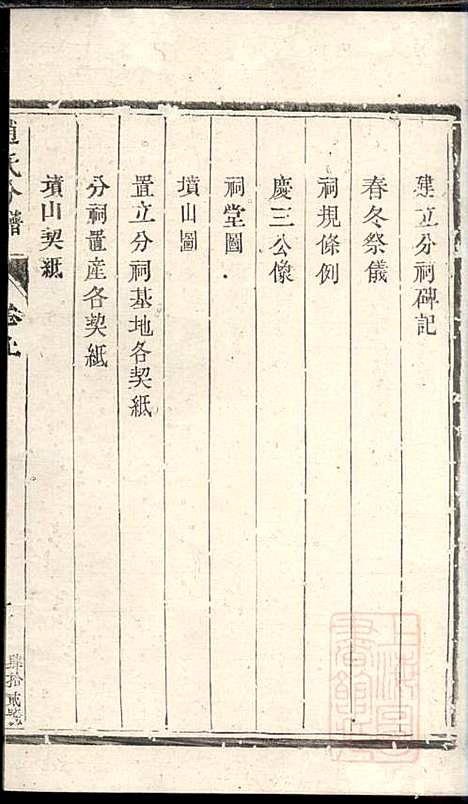 建立分祠碑記
春冬祭儀
祠規條例
慶三公像
祠堂圖
墳山圖
置立分祠基地各契紙
分祠置產各契紙
墳山契紙
趙氏分譜
卷上
肆拾貳號